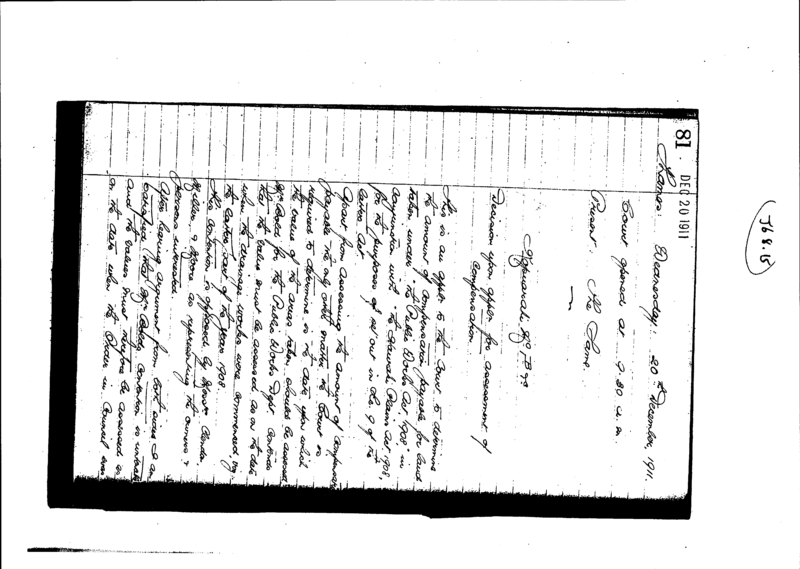 J6 8.15
81 DEC 20 1911
Thames: Wednesday: 20th December, 1911.
Court opened at 9.30 a.m.
Present: The Same.
Decision upon appln for assessment of
compensation.
This is an appln to the Court to determine
the amount of compensation payable for land
taken under "the Public Works Act 1908" in
conjunction with "the Hauraki Plains Act 1908,
for the purposes of set out in Sec 9 of the
latter Act.
Apart from assessing the amount of compensation
payable the only other matter the Court is
required to determine is the date upon which
the value of the areas taken should be assessed
for the Public Works Dept. contends
that the value must be assessed as on the date
when the drainage works were commenced, viz.
the earlier part of the year 1908.
His contention is opposed by Messrs
& as representing the owners &
persons interested.
After hearing argument from both sides I am
satisfied that contention is
and the values must therefore be assessed as
on the date when the Order in Council was